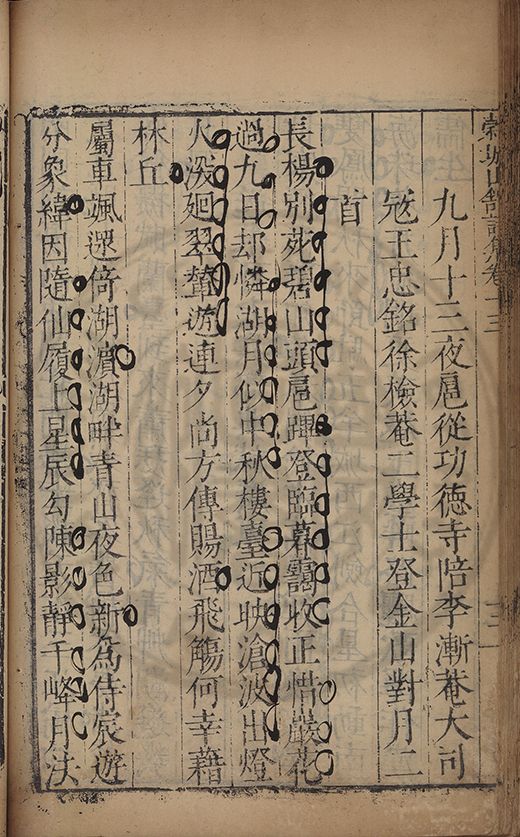 榖城山舘詩集卷十三
九月十三夜扈從功德寺陪李漸菴大司
寇王忠銘徐檢菴二學士登金山對月二
首
長楊別苑碧山頭扈蹕登臨暮靄收正惜巖花
過九日却憐湖月似中秋樓臺近映滄波出燈
火深廻翠輦遊連夕尚方傳賜酒飛觴何幸藉
林丘
屬車颯遝倚湖濵湖畔青山夜色新為侍宸遊
分象緯因隨仙履上星辰勾陳影靜千峰月法